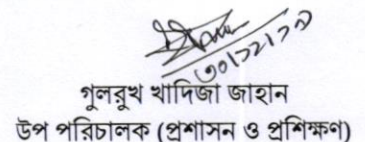 গুলরুখ খাদিজা জাহান
উপ পরিচালক (প্রশাসন ও প্রশিক্ষণ)